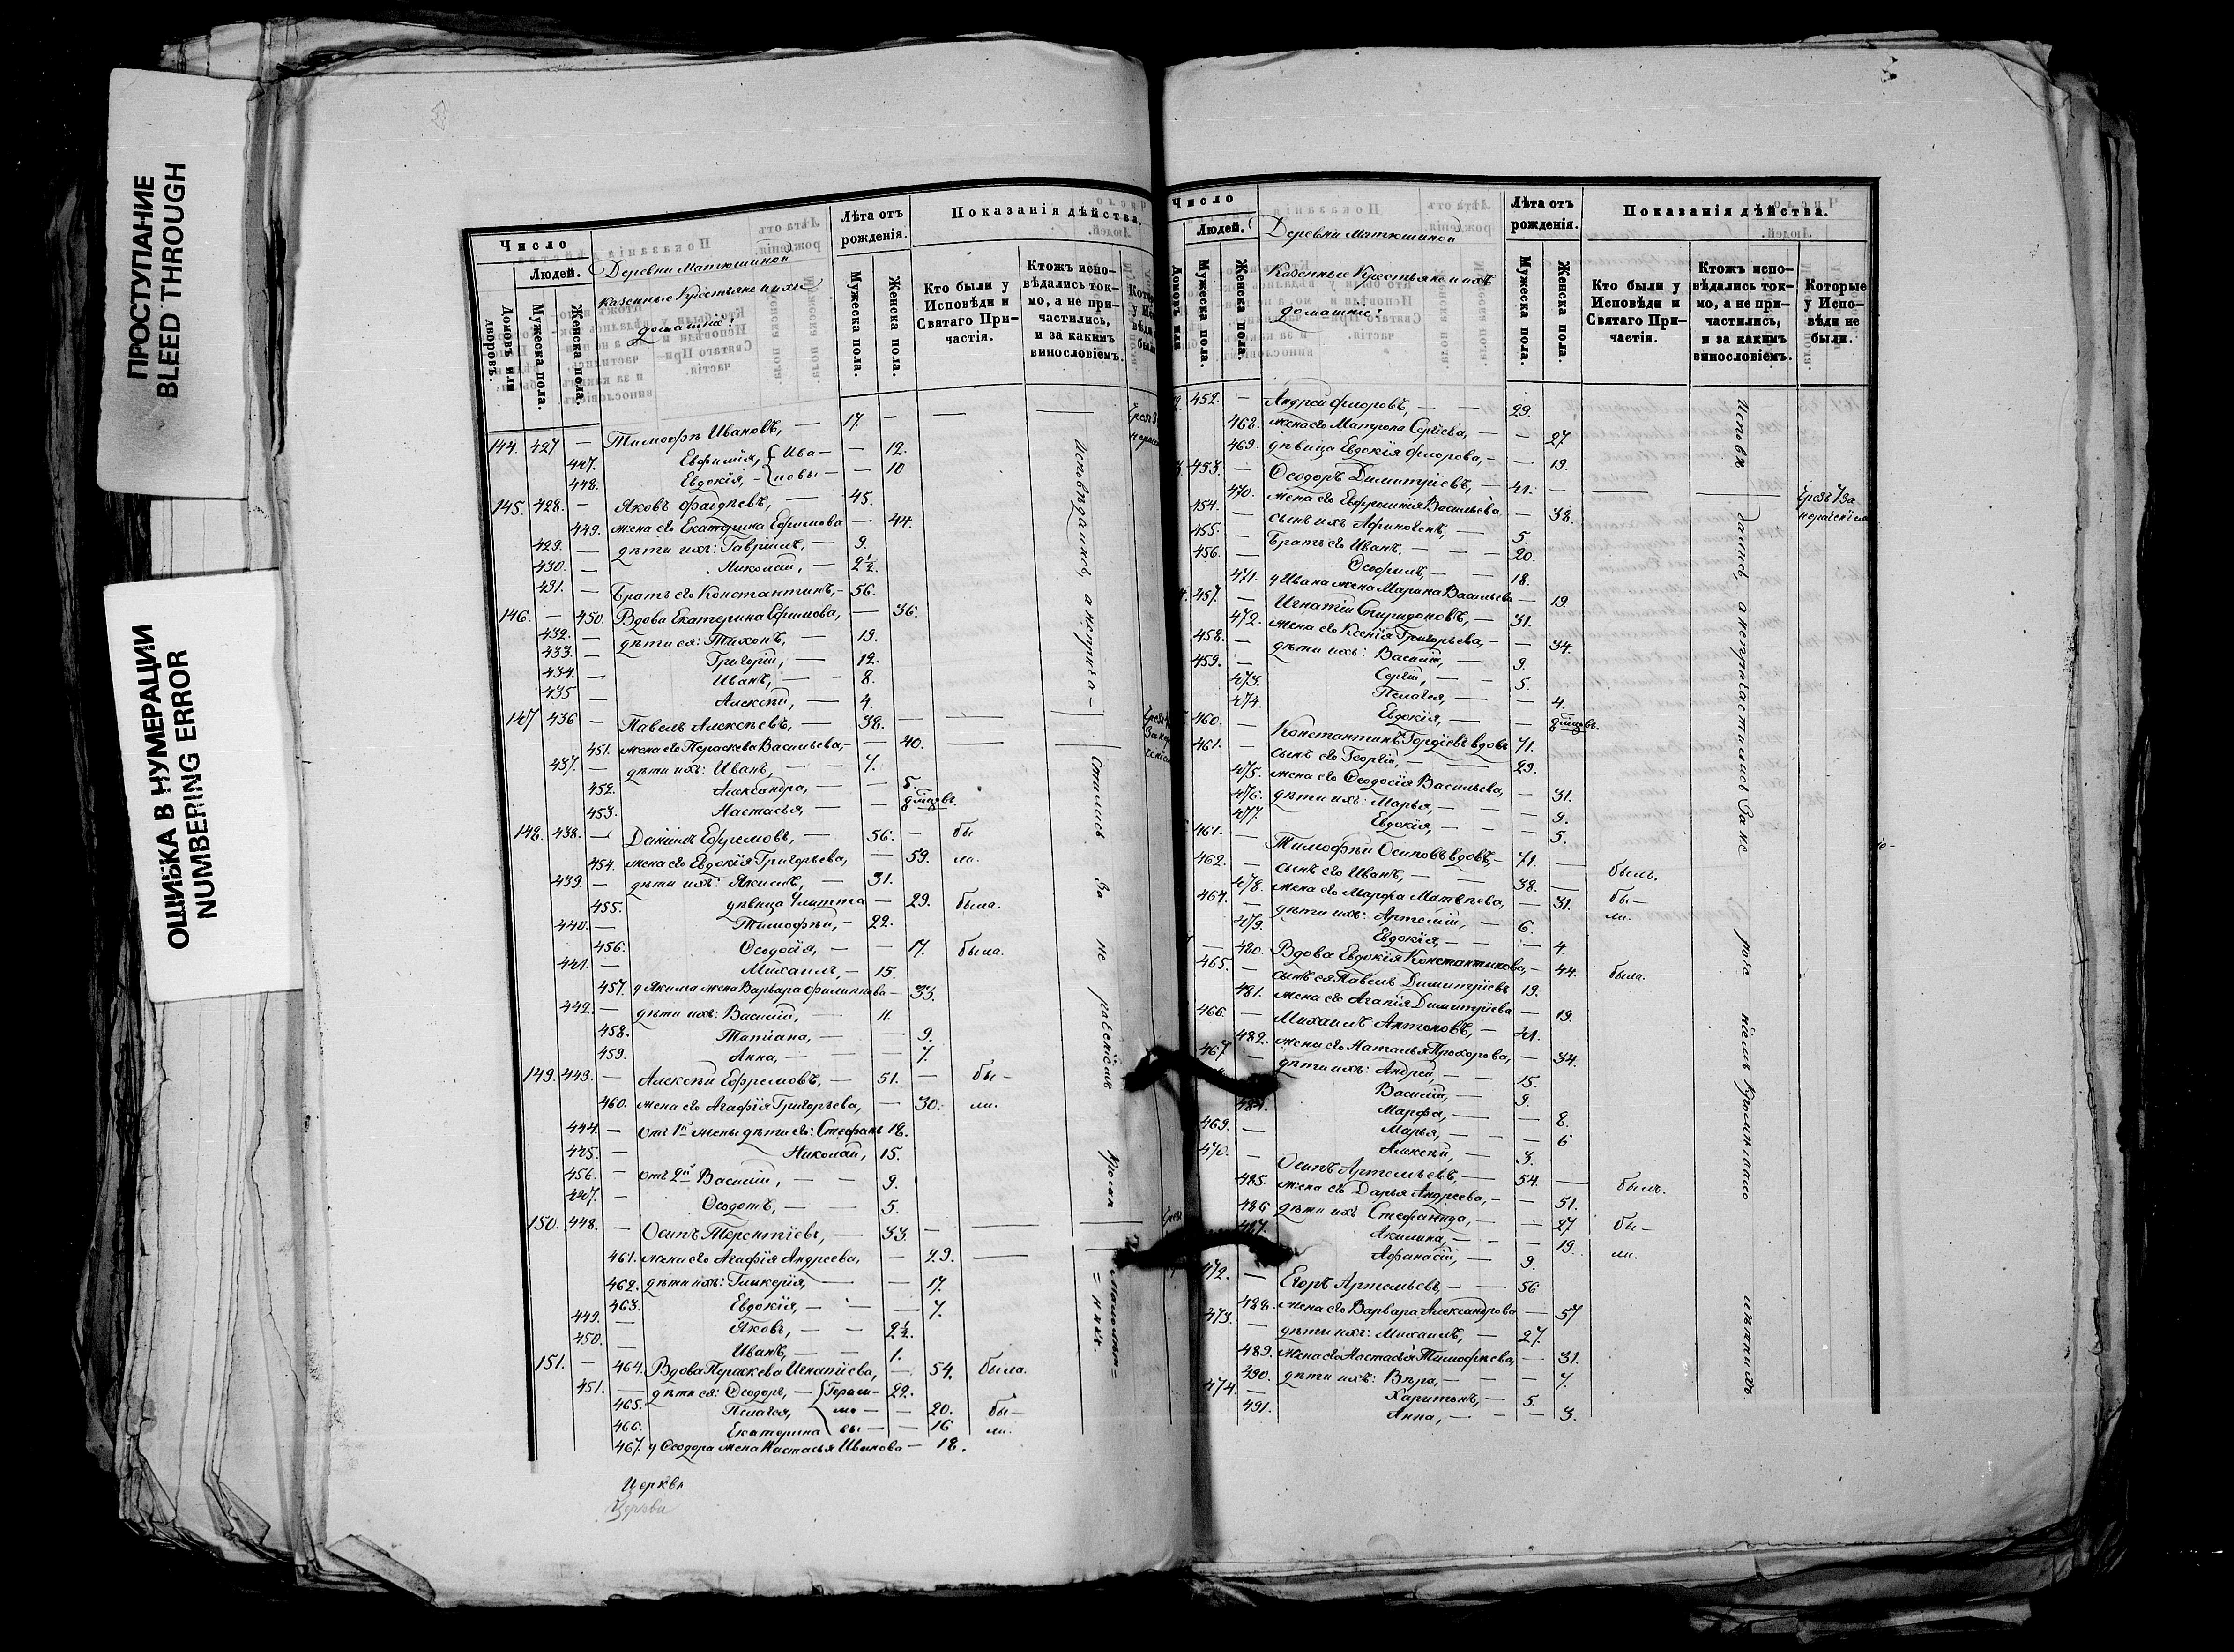 ПРОСТУПАНИЕ
BLEED THROUGH
ОШИБКА В НУМЕРАЦИИ
NUMBERING ERROR
Число
Людей.
Домовъ или дворовъ.
Мужеска пола.
Женска пола.
Деревни Матюшиной
казенные Крестьяне и ихъ
домашніе:
Лѣта отъ рожденія.
Мужеска пола.
Женска пола.
Показанія дѣйства.
Кто были у Исповѣди и Святаго Причастія.
Ктожъ исповѣдались токмо, а не причастились, и за какимъ винословіемъ.
144. 427 — Тимофѣй Ивановъ, — 17. —
447. Евфимія, { Ива — — 12.
448. Евдокія, — { новы — — 10
145. 428. — Яковъ Фаддѣевъ, — 45.
449. жена его Екатерина Ефимова — 44.
429. — дѣти ихъ: Гавріилъ, — 9.
430. — Николай, — 2½.
431. — Братъ его Константинъ, — 56.
146. — 450. Вдова Екатерина Ефимова, — 36.
432. — дѣти ея: Тихонъ, — 19.
433. — Григорій, — 12.
434. — Иванъ, — 8.
435 — Алексѣй, — 4.
147 436 — Павелъ Алексѣевъ, — 38. —
451. жена его Параскева Васильева, — 40. —
437. — дѣти ихъ: Иванъ, — 7.
452. Александра, — — 5.
453. Настасья, — — 8 мцовъ.
148. 438. — Даніилъ Ефремовъ, — 56. — бы
454. жена его Евдокія Григорьева, — 59. ли.
439. — дѣти ихъ: Якимъ, — 31.
455. дѣвица Улитта — 29. была.
440. — Тимофѣй, — 22.
456. Ѳеодосія, — — 17. была.
441. — Михаилъ, — 15.
457. у Якима жена Варвара Филиппова — 33.
442. — дѣти ихъ: Василій, — 11.
458. Татіана, — — 9.
459. Анна, — — 7.
149. 443. — Алексѣй Ефремовъ, — 51. — бы —
460. жена его Агафія Григорьева, — 30. ли.
444. — отъ 1й жены дѣти его: Стефанъ 18.
445. — Николай, 15.
456. — отъ 2й Василій, — — 9.
447. — Ѳеодотъ, — — 5.
150. 448. — Осипъ Терентіевъ, — 33. —
461. жена его Агафія Андреева, — 49. —
462. дѣти ихъ: Гликерія, — — 17.
463. Евдокія, — — — 7.
449. — Яковъ, — — 2½.
450. — Иванъ, — — 1.
151. — 464. Вдова Параскева Игнатіева, — 54. была.
451. — дѣти ея: Ѳеодоръ, — { Гераси — 22.
465. Пелагея, { мо — — 20. бы —
466. Екатерина { вы — — 16 ли.
467. у Ѳеодора жена Настасья Иванова — 18.
Исповѣдались, а неприча-
стились за не раченіемъ кромѣ
Церкви
Церкви
Число
Людей.
Мужеска пола.
Женска пола.
Деревни Матюшиной
Казенные Крестьяне и ихъ
домашніе:
Лѣта отъ рожденія.
Мужеска пола.
Женска пола.
Показанія дѣйства.
Кто были у Исповѣди и Святаго Причастія.
Ктожъ исповѣдались токмо, а не причастились, и за какимъ винословіемъ.
Которые у Исповѣди не были.
452. — Андрей Флоровъ, — 29.
468. жена его Матрона Сергіева, — — 27
469. дѣвица Евдокія Флорова, — — 19.
453. — Ѳеодоръ Димитріевъ, — 41. —
470. жена его Евфросинія Васильева — 38.
454. — сынъ ихъ Афиногенъ, — 5.
455. — Братъ его Иванъ. — — 20.
456. — Ѳеофилъ, — — 18.
471. у Ивана жена Марина Васильева — 19.
457. — Игнатій Спиридоновъ, — 31.
472. жена его Ксенія Григорьева, — — 34.
458. — дѣти ихъ: Василій, — 9.
459. — Сергій, — — 5.
473. Пелагея, — — 4.
474. Евдокія, — — 8 мцовъ.
460. — Константинъ Гордіевъ вдовъ 71.
461. — сынъ его Георгій, — 29.
475. жена его Ѳеодосія Васильева, — 31.
476. дѣти ихъ: Марья, — — 9.
477. Евдокія, — — 5.
461. — Тимофѣй Осиповъ вдовъ, — 71. — былъ.
462. — сынъ его Иванъ, — 38. — бы —
478. жена его Марфа Матвѣева, — 31. ли.
464. — дѣти ихъ: Артемій, — 6.
479. Евдокія, — — — 4.
— 480. Вдова Евдокія Константинова, — 44. была.
465. — сынъ ея Павелъ Димитріевъ 19.
481. жена его Агапія Димитріева — 19.
466. — Михаилъ Антоновъ, — 41.
482. жена его Наталья Прохорова, — 34.
467 — дѣти ихъ: Андрей, — 15.
Василій, — 9.
484. Марфа, — — 8.
Марья, — — — 6
469. — Алексѣй, — — 3.
470. — Осипъ Артемьевъ, — 54. — былъ.
485. жена его Дарья Андреева, — — 51.
486 дѣти ихъ Стефанида, — — 27 бы —
487. Акилина, — — — 19. ли.
Афанасій, — 9.
472. — Егоръ Артемьевъ, — 56
488. жена его Варвара Александрова — 57
473. — дѣти ихъ: Михаилъ, — 27.
489. Жена его Настасья Тимофѣева, — 31.
490. дѣти ихъ: Вѣра, — — 7.
474. — Харитонъ, — 5.
491. Анна, — — — 3.
Исповѣдались, а непричастились за не раченіемъ кромѣ мало лѣтнихъ.